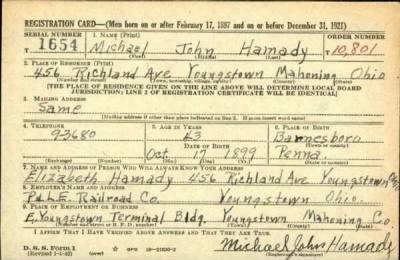 REGISTRATION CARD—(Men born on or after February 17, 1897 and on or before December 31, 1921)
SERIAL NUMBER 1. NAME (Print) ORDER NUMBER
1654 Michael John Hamady 10,801
(First) (Middle) (Last)
2. PLACE OF RESIDENCE (Print)
456 Richland Ave Youngstown Mahoning Ohio
(Number and street) (Town, township, village, or city) (County) (State)
[THE PLACE OF RESIDENCE GIVEN ON THE LINE ABOVE WILL DETERMINE LOCAL BOARD
JURISDICTION; LINE 2 OF REGISTRATION CERTIFICATE WILL BE IDENTICAL]
3. MAILING ADDRESS
Same
[Mailing address if other than place indicated on line 2. If same insert word same]
4. TELEPHONE 5. AGE IN YEARS 6. PLACE OF BIRTH
93680 43 Barnesboro
DATE OF BIRTH (Town or county)
Oct 17 1899 Penna.
(Exchange) (Number) (Mo.) (Day) (Yr.) (State or country)
7. NAME AND ADDRESS OF PERSON WHO WILL ALWAYS KNOW YOUR ADDRESS
Elizabeth Hamady 456 Richland Ave Youngstown
8. EMPLOYER'S NAME AND ADDRESS
P&L.E. Railroad Co. Youngstown Ohio.
9. PLACE OF EMPLOYMENT OR BUSINESS
E. Youngstown Terminal Bldg. Youngstown Mahoning Co
(Number and street or R. F. D. number) (Town) (County) (State)
I AFFIRM THAT I HAVE VERIFIED ABOVE ANSWERS AND THAT THEY ARE TRUE.
D. S. S. Form 1
(Revised 1-1-42) (over) GPO 16—21630-2 Michael John Hamady